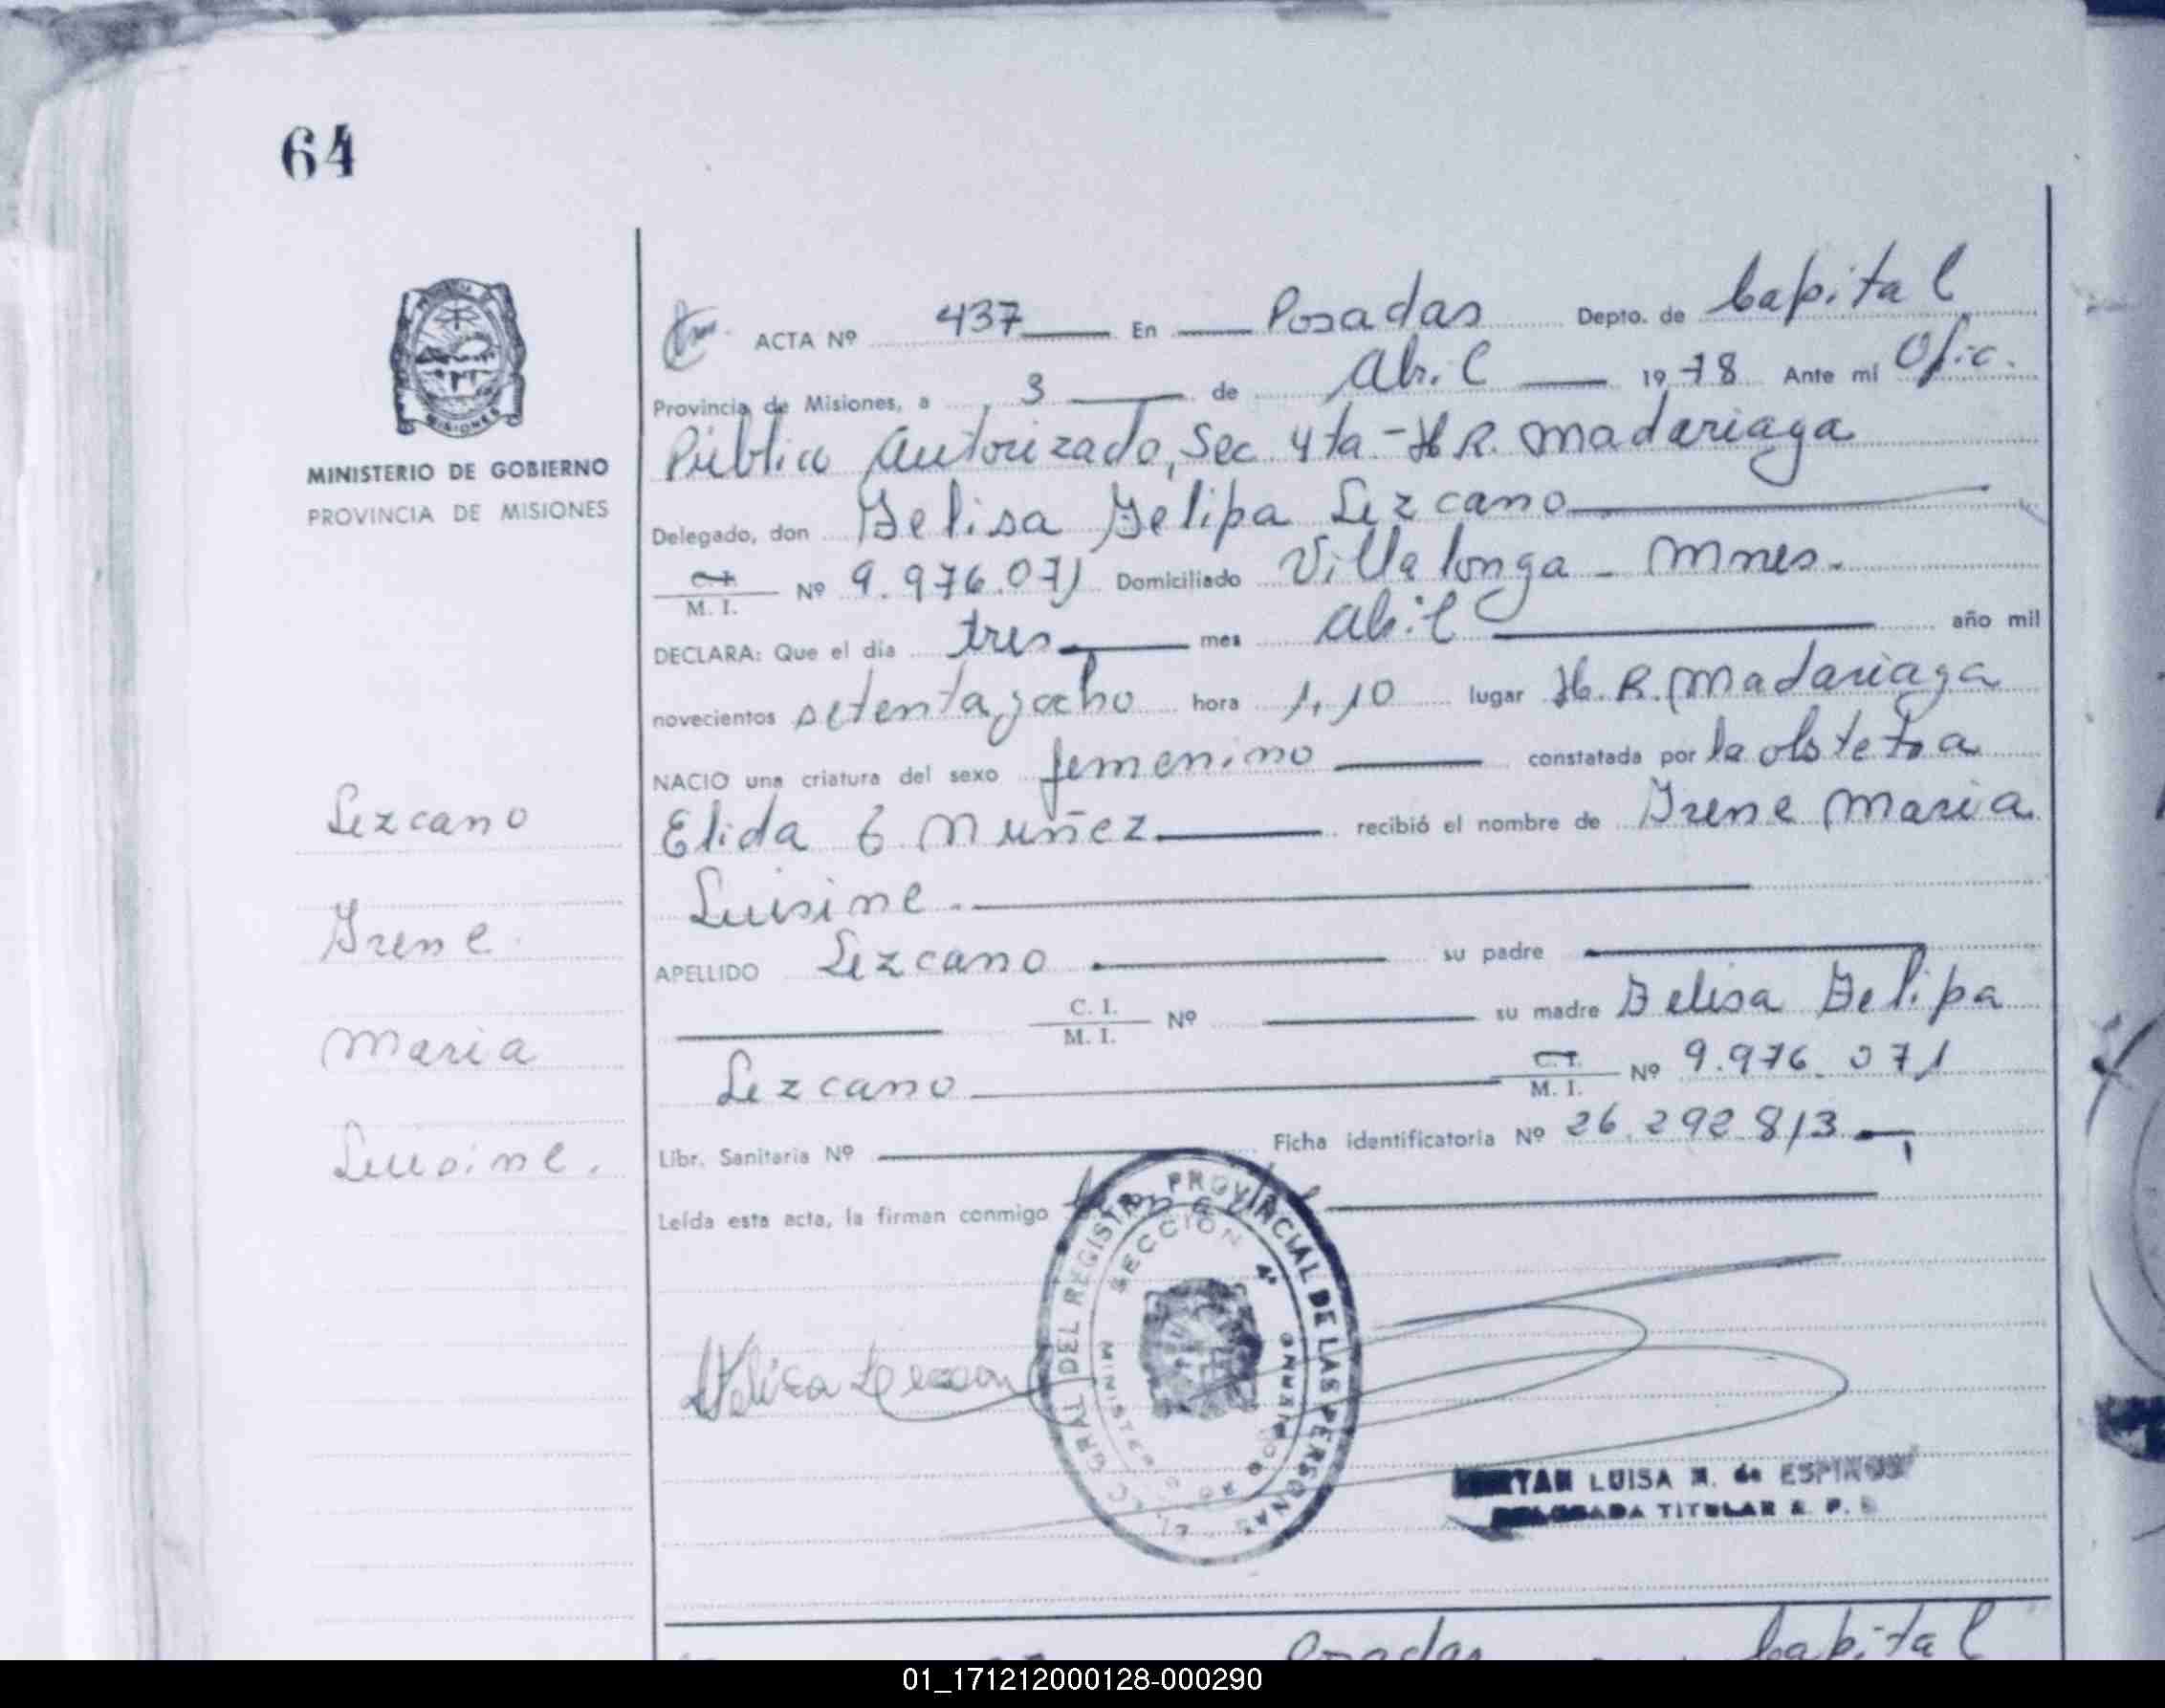 64
MINISTERIO DE GOBIERNO
PROVINCIA DE MISIONES
ACTA Nº 437 En Posadas Depto. de Capital
Provincia de Misiones, a 3 de Abril 1978 Ante mí Ofic.
Público Autorizado, Sec 4ta - H R. Madariaga
Delegado, don Felisa Felipa Lezcano
C.I. / M. I. Nº 9.976.071 Domiciliado Villa longa - Mnes.
DECLARA: Que el día tres mes Abril año mil
novecientos setenta y ocho hora 1,10 lugar H. R. Madariaga
NACIO una criatura del sexo femenino constatada por la obstetra
Elida E Nuñez recibió el nombre de Irene Maria
Luisine.
APELLIDO Lezcano su padre
C. I. / M. I. Nº su madre Felisa Felipa
Lezcano C. I. / M. I. Nº 9.976.071
Libr. Sanitaria Nº Ficha identificatoria Nº 26.292.813
Leída esta acta, la firman conmigo
Lezcano
Irene
Maria
Luisine.
Felisa Lezcano
GRAL DEL REGISTRO PROVINCIAL DE LAS PERSONAS
SECCION 4ª
LUISA M. de ESPINOSA
DELEGADA TITULAR R. P.
Posadas Capital
01_171212000128-000290